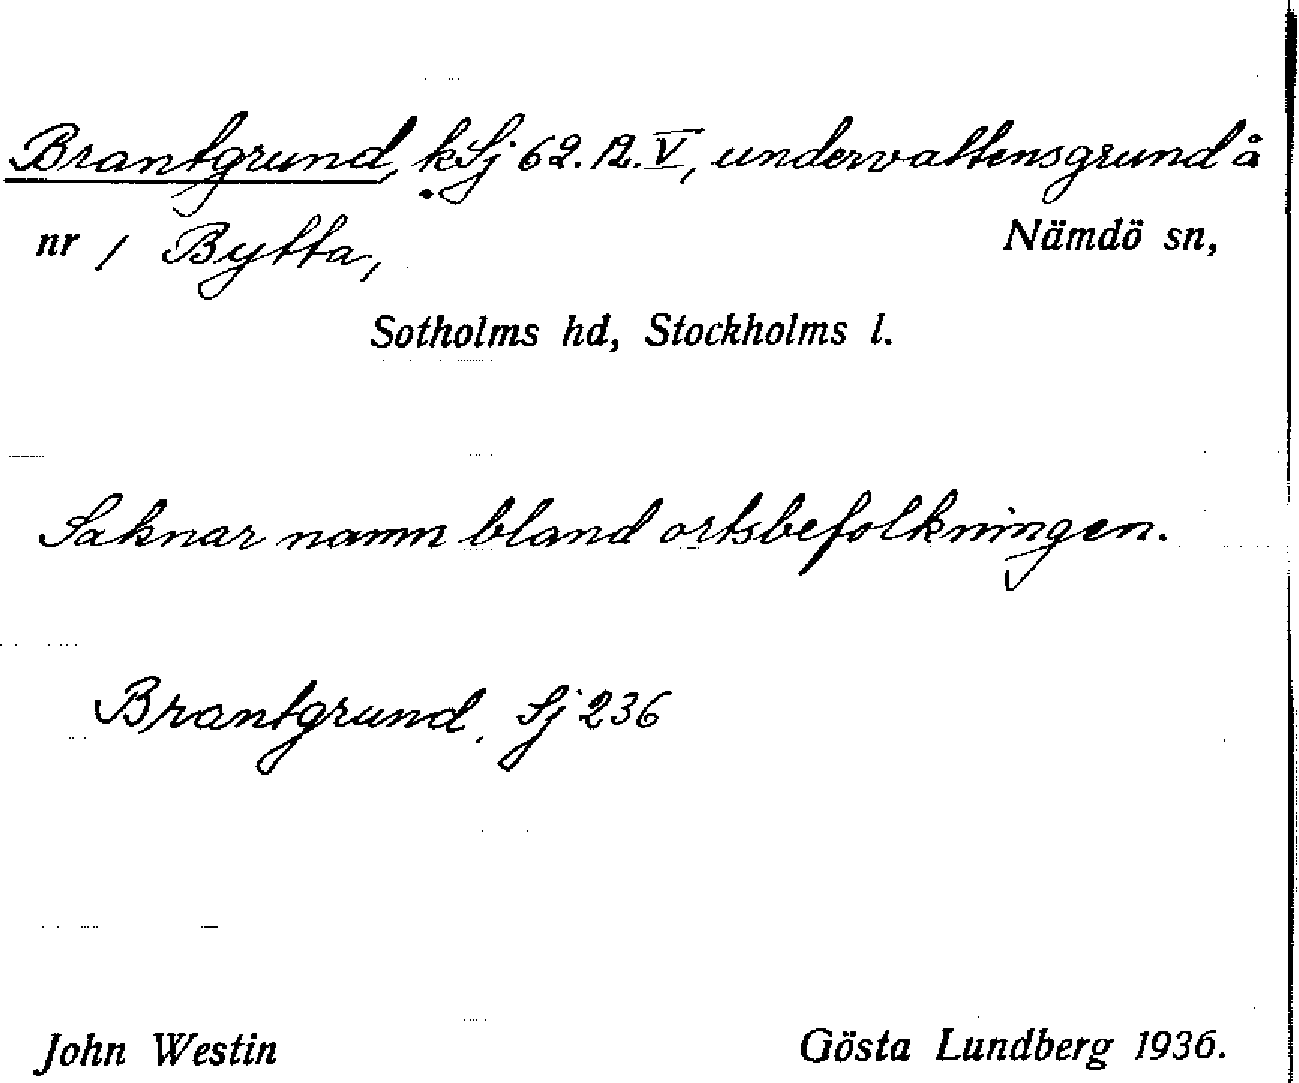 Brantgrund, kSj 62. 12. V, undervattensgrund å
nr 1 Bytta, Nämdö sn,
Sotholms hd, Stockholms l.
Saknar namn bland ortsbefolkningen.
Brantgrund. Sj 236
John Westin Gösta Lundberg 1936.